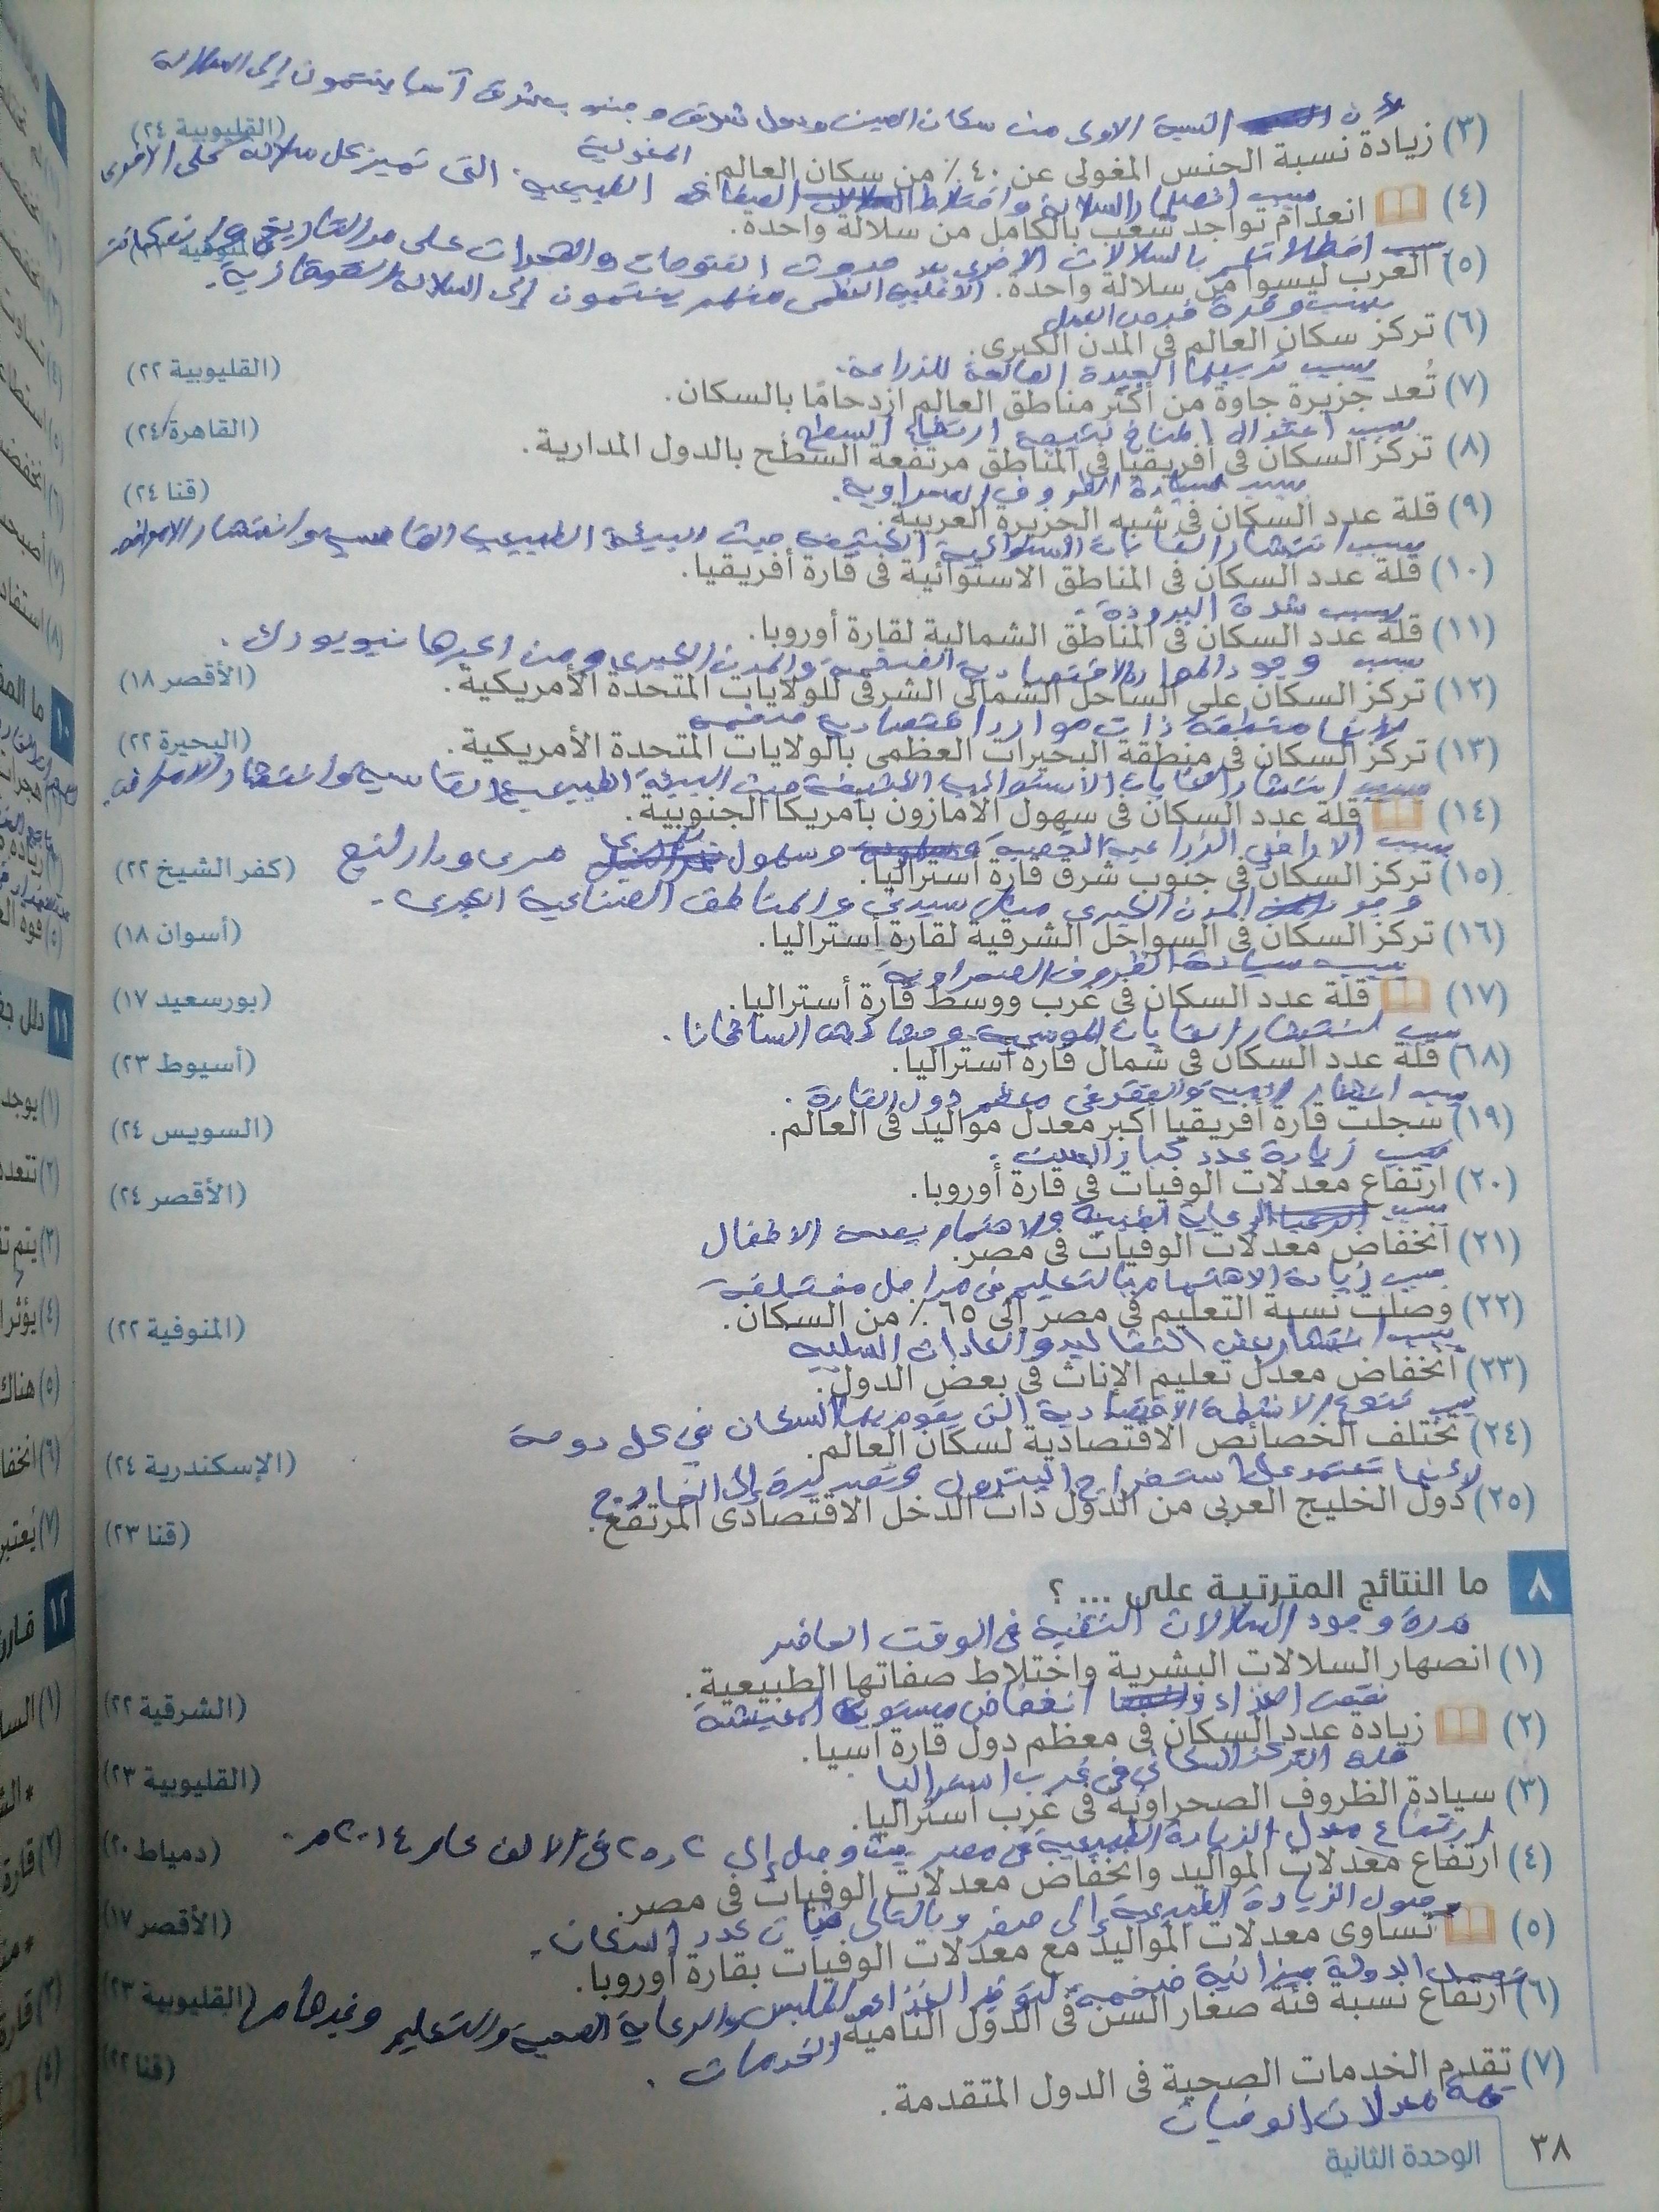 لأن النسبة الاولى من سكان الصين ودول شرق و جنوب شرق آسيا ينتمون إلى السلالة
المغولية
(٣) زيادة نسبة الجنس المغولى عن ٤٠٪ من سكان العالم. (القليوبية ٢٤)
بسبب انصهار السلالات واختلاط الصفات الطبيعية التى تميز كل سلالة على الاخرى
(٤) انعدام تواجد شعب بالكامل من سلالة واحدة. (المنوفية
بسبب اختلاطهم بالسلالات الاخرى بعد حدوث الفتوحات والهجرات على مر التاريخ وإن كانت
(٥) العرب ليسوا من سلالة واحدة. الأغلبية العظمى منهم ينتمون إلى السلالة القوقازية.
بسبب وفرة فرص العمل
(٦) تركز سكان العالم فى المدن الكبرى.
بسبب تربتها الجيدة الصالحة للزراعة.
(٧) تُعد جزيرة جاوة من أكثر مناطق العالم ازدحامًا بالسكان. (القليوبية ٢٢)
بسبب اعتدال المناخ نتيجة ارتفاع السطح
(٨) تركز السكان فى أفريقيا فى المناطق مرتفعة السطح بالدول المدارية. (القاهرة ٢٤)
بسبب سيادة الظروف الصحراوية.
(٩) قلة عدد السكان فى شبه الجزيرة العربية. (قنا ٢٤)
بسبب انتشار الغابات الاستوائية الكثيفة حيث البيئة الطبيعية القاسية وانتشار الامراض
(١٠) قلة عدد السكان فى المناطق الاستوائية فى قارة أفريقيا.
بسبب شدة البرودة.
(١١) قلة عدد السكان فى المناطق الشمالية لقارة أوروبا.
بسبب وجود الموارد الاقتصادية الضخمة والمدن الكبرى ومن اكبرها نيويورك.
(١٢) تركز السكان على الساحل الشمالى الشرقى للولايات المتحدة الأمريكية. (الأقصر ١٨)
لأنها منطقة ذات موارد اقتصادية ضخمة
(١٣) تركز السكان فى منطقة البحيرات العظمى بالولايات المتحدة الأمريكية. (البحيرة ٢٢)
بسبب انتشار الغابات الاستوائية الكثيفة حيث البيئة الطبيعية القاسية وانتشار الامراض
(١٤) قلة عدد السكان فى سهول الأمازون بأمريكا الجنوبية.
بسبب الاراضى الزراعية الخصبة وسهول نهرى مرى ودارلنج
(١٥) تركز السكان فى جنوب شرق قارة أستراليا. (كفر الشيخ ٢٢)
وجود المدن الكبرى مثل سيدنى والمناطق الصناعية الكبرى.
(١٦) تركز السكان فى السواحل الشرقية لقارة أستراليا. (أسوان ١٨)
بسبب سيادة الظروف الصحراوية
(١٧) قلة عدد السكان فى غرب ووسط قارة أستراليا. (بورسعيد ١٧)
بسبب انتشار الغابات الموسمية وحشائش السافانا.
(١٨) قلة عدد السكان فى شمال قارة أستراليا. (أسيوط ٢٣)
بسبب انتشار الامية والفقر فى معظم دول القارة.
(١٩) سجلت قارة أفريقيا أكبر معدل مواليد فى العالم. (السويس ٢٤)
بسبب زيادة عدد كبار السن.
(٢٠) ارتفاع معدلات الوفيات فى قارة أوروبا. (الأقصر ٢٤)
بسبب الرعاية الطبية والاهتمام بصحة الاطفال
(٢١) انخفاض معدلات الوفيات فى مصر.
بسبب زيادة الاهتمام بالتعليم فى مراحل مختلفة
(٢٢) وصلت نسبة التعليم فى مصر إلى ٦٥٪ من السكان. (المنوفية ٢٢)
بسبب انتشار بعض التقاليد والعادات السلبية
(٢٣) انخفاض معدل تعليم الإناث فى بعض الدول.
بسبب تنوع الانشطة الاقتصادية التى يقوم بها السكان فى كل دولة
(٢٤) تختلف الخصائص الاقتصادية لسكان العالم. (الإسكندرية ٢٤)
لأنها تعتمد على استخراج البترول وتصديرة إلى الخارج
(٢٥) دول الخليج العربى من الدول ذات الدخل الاقتصادى المرتفع. (قنا ٢٣)
٨ ما النتائج المترتبة على ... ؟
ندرة وجود السلالات النقية فى الوقت الحاضر
(١) انصهار السلالات البشرية واختلاط صفاتها الطبيعية. (الشرقية ٢٢)
نقص الغذاء و انخفاض مستوى المعيشة
(٢) زيادة عدد السكان فى معظم دول قارة آسيا. (القليوبية ٢٣)
قلة التركز السكانى فى غرب استراليا
(٣) سيادة الظروف الصحراوية فى غرب أستراليا.
ارتفاع معدل الزيادة الطبيعية فى مصر حيث وصل إلى ٢٥٫٢ فى الالف عام ٢٠١٤م.
(٤) ارتفاع معدلات المواليد وانخفاض معدلات الوفيات فى مصر. (دمياط ٢٠)
وصول الزيادة الطبيعية إلى صفر وبالتالى ثبات عدد السكان.
(٥) تساوى معدلات المواليد مع معدلات الوفيات بقارة أوروبا. (الأقصر ١٧)
تتحمل الدولة ميزانية ضخمة لتوفير الغذاء والملابس والرعاية الصحية والتعليم وغيرها من
(٦) ارتفاع نسبة فئة صغار السن فى الدول النامية. (القليوبية ٢٣)
الخدمات.
(٧) تقدم الخدمات الصحية فى الدول المتقدمة. (قنا ٢٢)
قلة معدلات الوفيات
٣٨ الوحدة الثانية